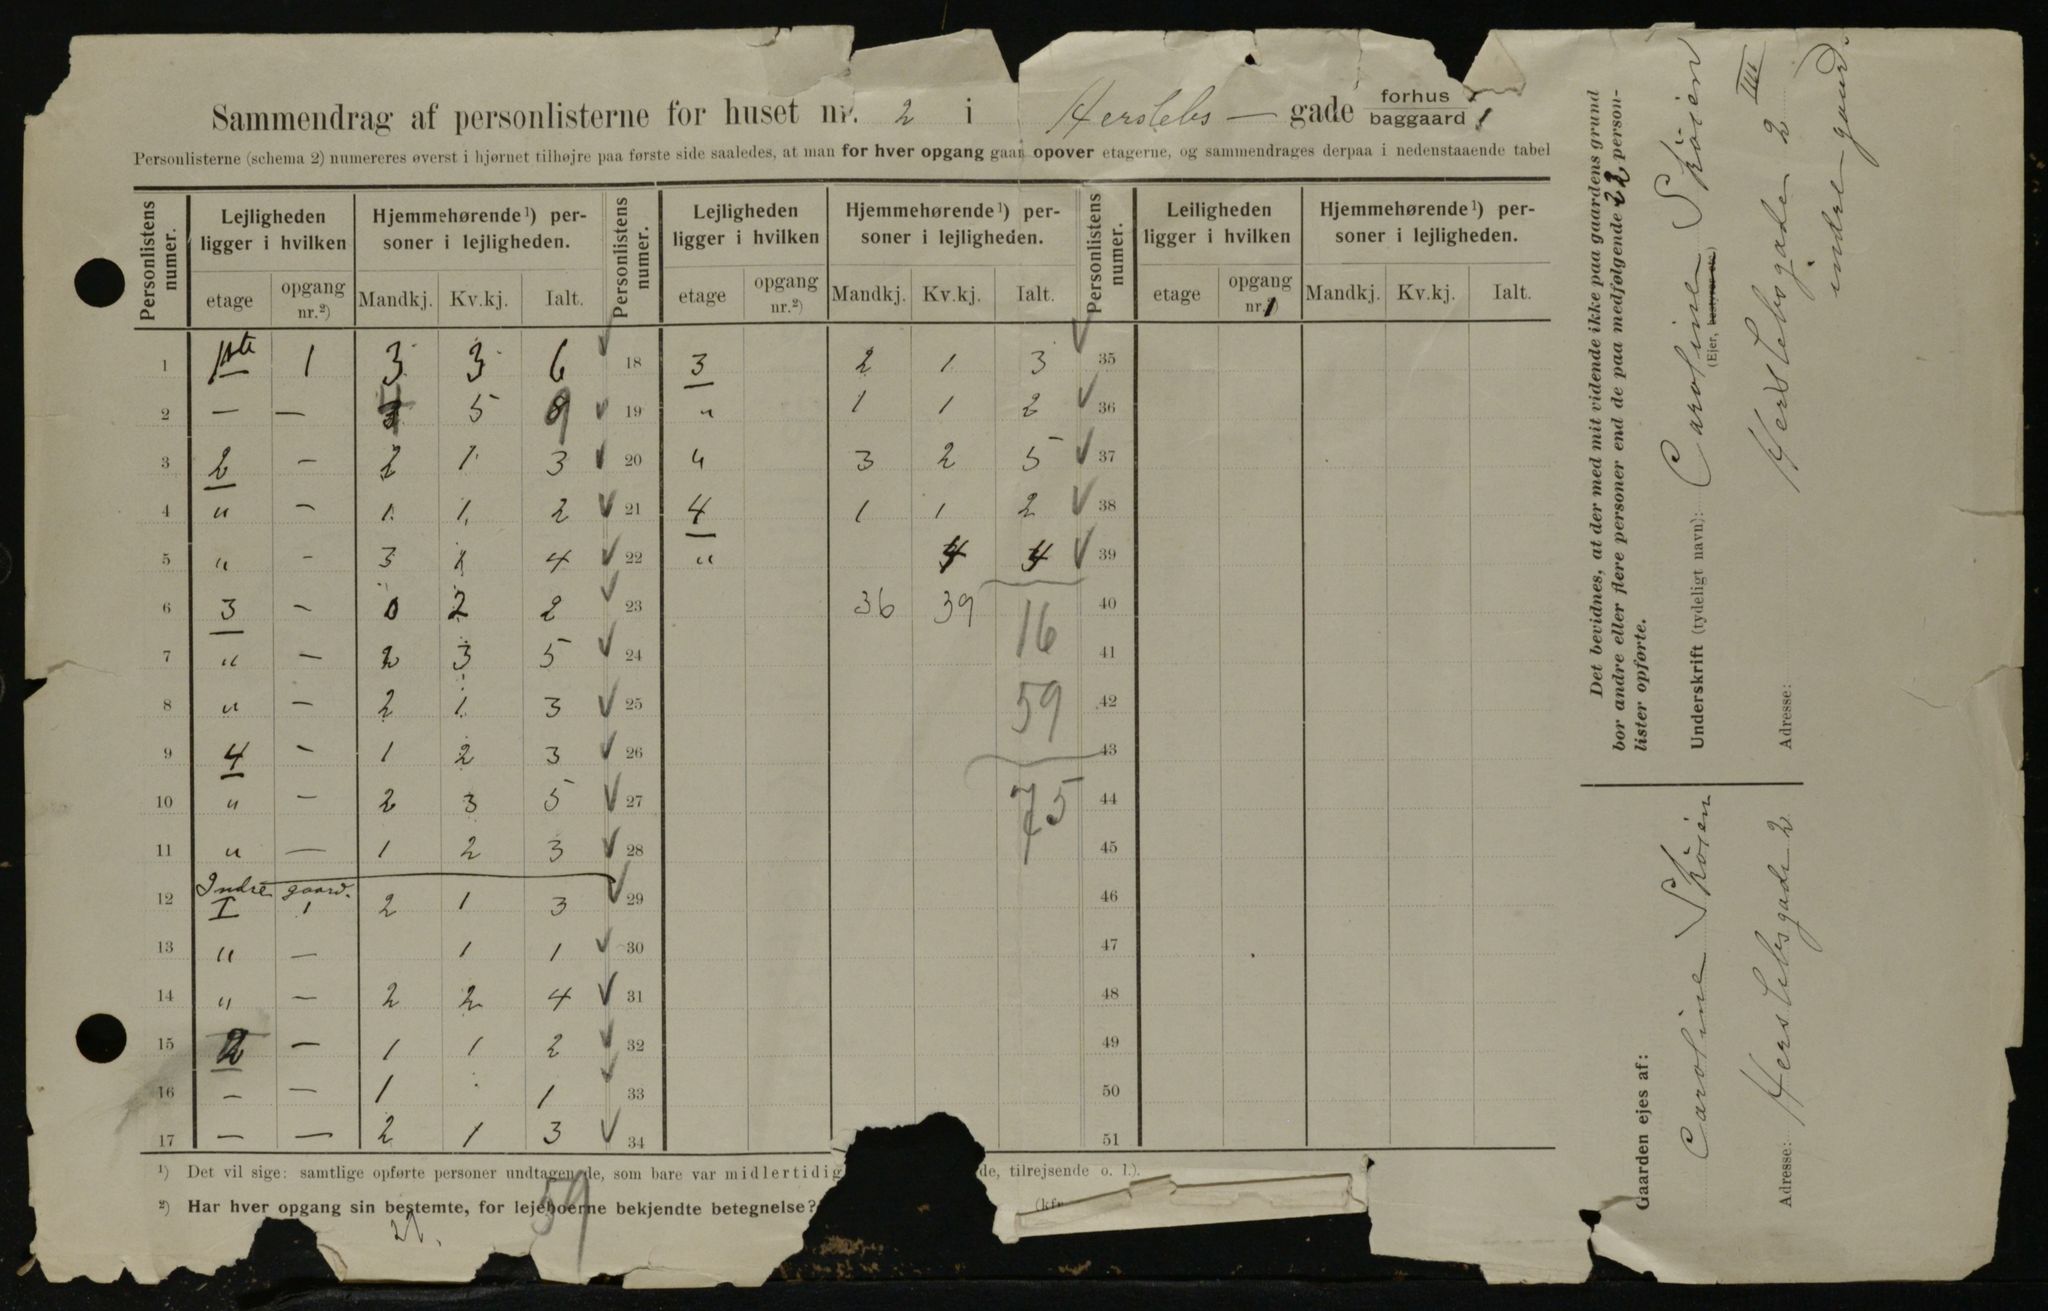 Sammendrag af personlisterne for huset nr. 2 i Herslebs — gade forhus baggaard 1
Personlisterne (schema 2) numereres øverst i hjørnet tilhøjre paa første side saaledes, at man for hver opgang gaar opover etagerne, og sammendrages derpaa i nedenstaaende tabel
Personlistens numer. Lejligheden ligger i hvilken Hjemmehørende¹) personer i lejligheden. Personlistens numer. Lejligheden ligger i hvilken Hjemmehørende¹) personer i lejligheden. Personlistens numer. Leiligheden ligger i hvilken Hjemmehørende¹) personer i lejligheden.
etage opgang nr.²) Mandkj. Kv.kj. Ialt. etage opgang nr.²) Mandkj. Kv.kj. Ialt. etage opgang nr.²) Mandkj. Kv.kj. Ialt.
1 1ste 1 3 3 6 18 3 2 1 3 35
2 — — 4 5 9 19 " 1 1 2 36
3 2 — 2 1 3 20 " 3 2 5 37
4 " — 1 1 2 21 4 1 1 2 38
5 " — 3 1 4 22 " 4 4 39
6 3 — 0 2 2 23 36 39 16 40
7 " — 2 3 5 24 41
8 " — 2 1 3 25 59 42
9 4 — 1 2 3 26 43
10 " — 2 3 5 27 75 44
11 " — 1 2 3 28 45
Indre gaard.
12 I 1 2 1 3 29 46
13 " — 1 1 30 47
14 " — 2 2 4 31 48
15 2 — 1 1 2 32 49
16 — — 1 1 33 50
17 — — 2 1 3 34 51
¹) Det vil sige: samtlige opførte personer undtagen de, som bare var midlertidig de, tilrejsende o. l.).
²) Har hver opgang sin bestemte, for lejeboerne bekjendte betegnelse?
59
Det bevidnes, at der med mit vidende ikke paa gaardens grund
bor andre eller flere personer end de paa medfølgende 22 person-
lister opførte.
Underskrift (tydeligt navn): Caroline Skøien
(Ejer, bestyrer etc.)
Adresse: Herslebsgaden 2 III
indre gaard.
Gaarden ejes af:
Caroline Skøien
Adresse: Herslebsgade 2.